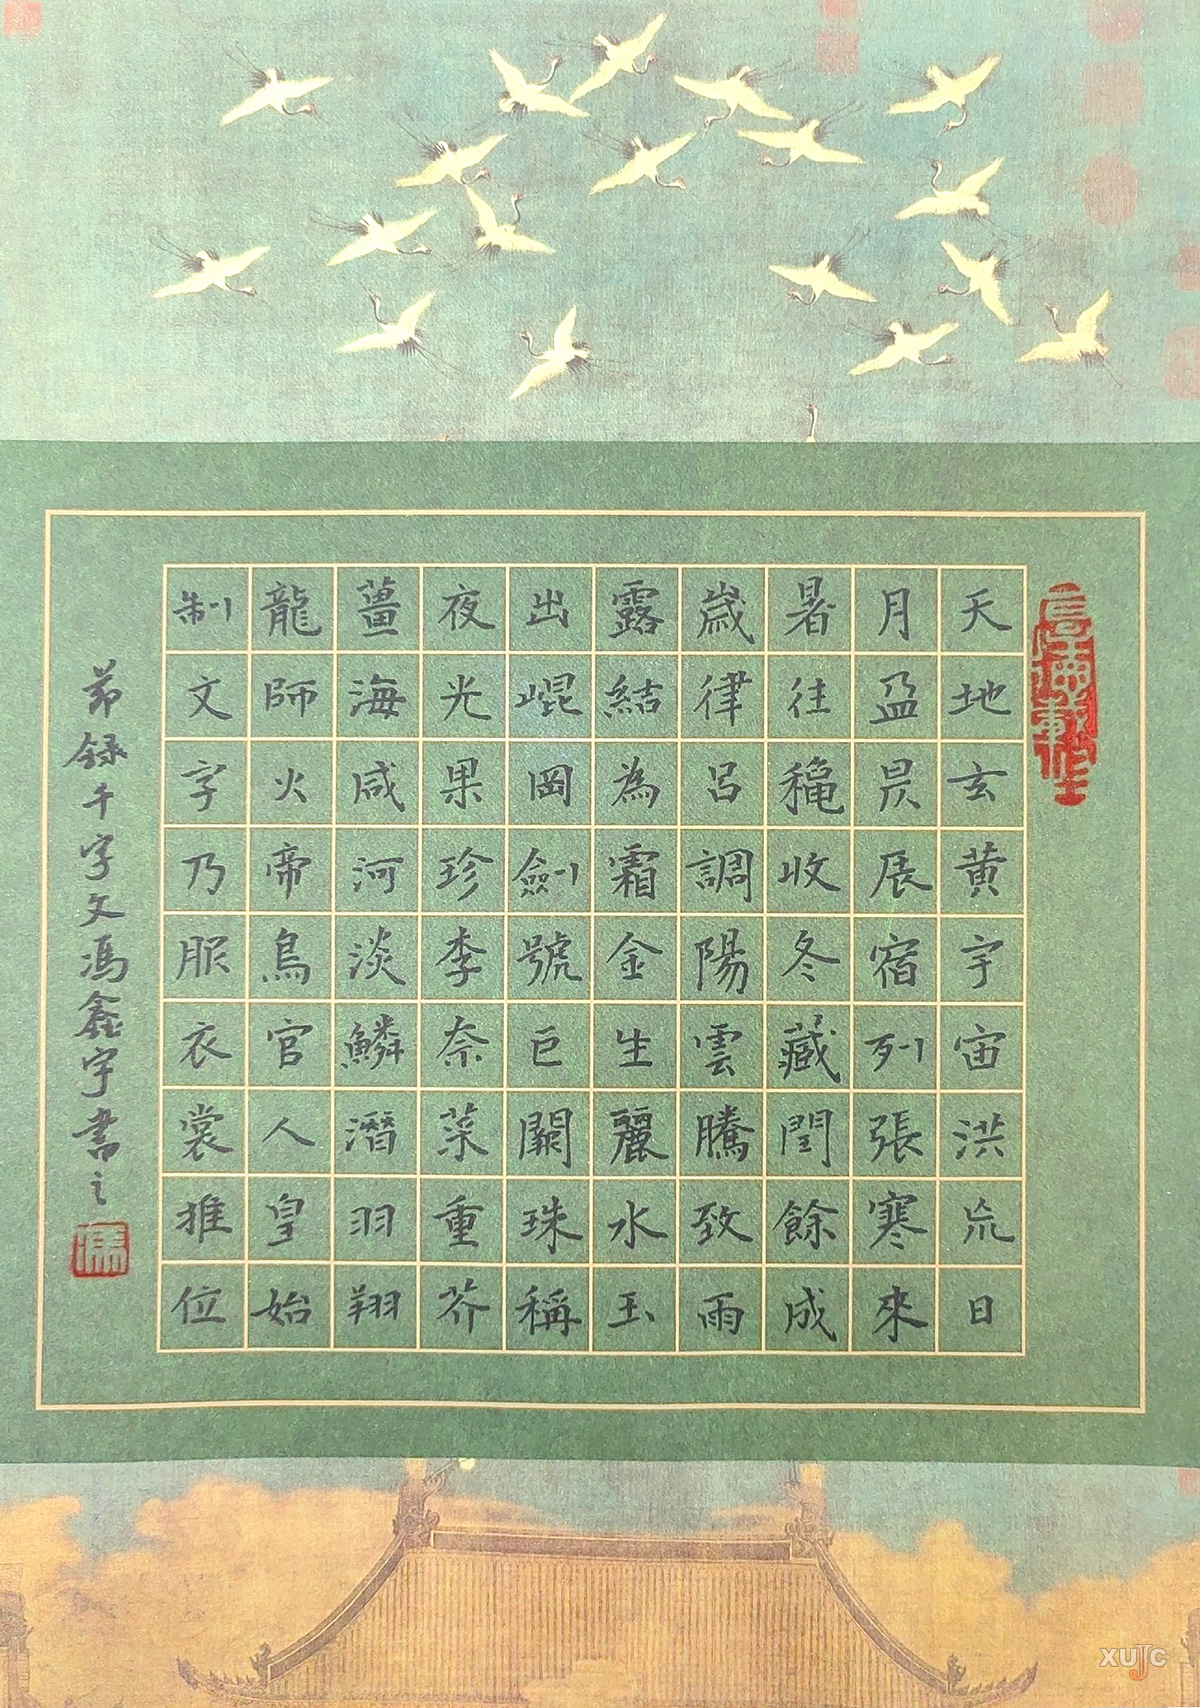 天地玄黄宇宙洪荒日
月盈昃辰宿列張寒來
暑往穐收冬藏閏餘成
歲律呂調陽雲騰致雨
露結為霜金生麗水玉
出崐岡劍號巨闕珠稱
夜光果珍李奈菜重芥
薑海咸河淡鱗潛羽翔
龍師火帝鳥官人皇始
制文字乃服衣裳推位
節録千字文馮鑫宇書之
厚德載物
XUJC